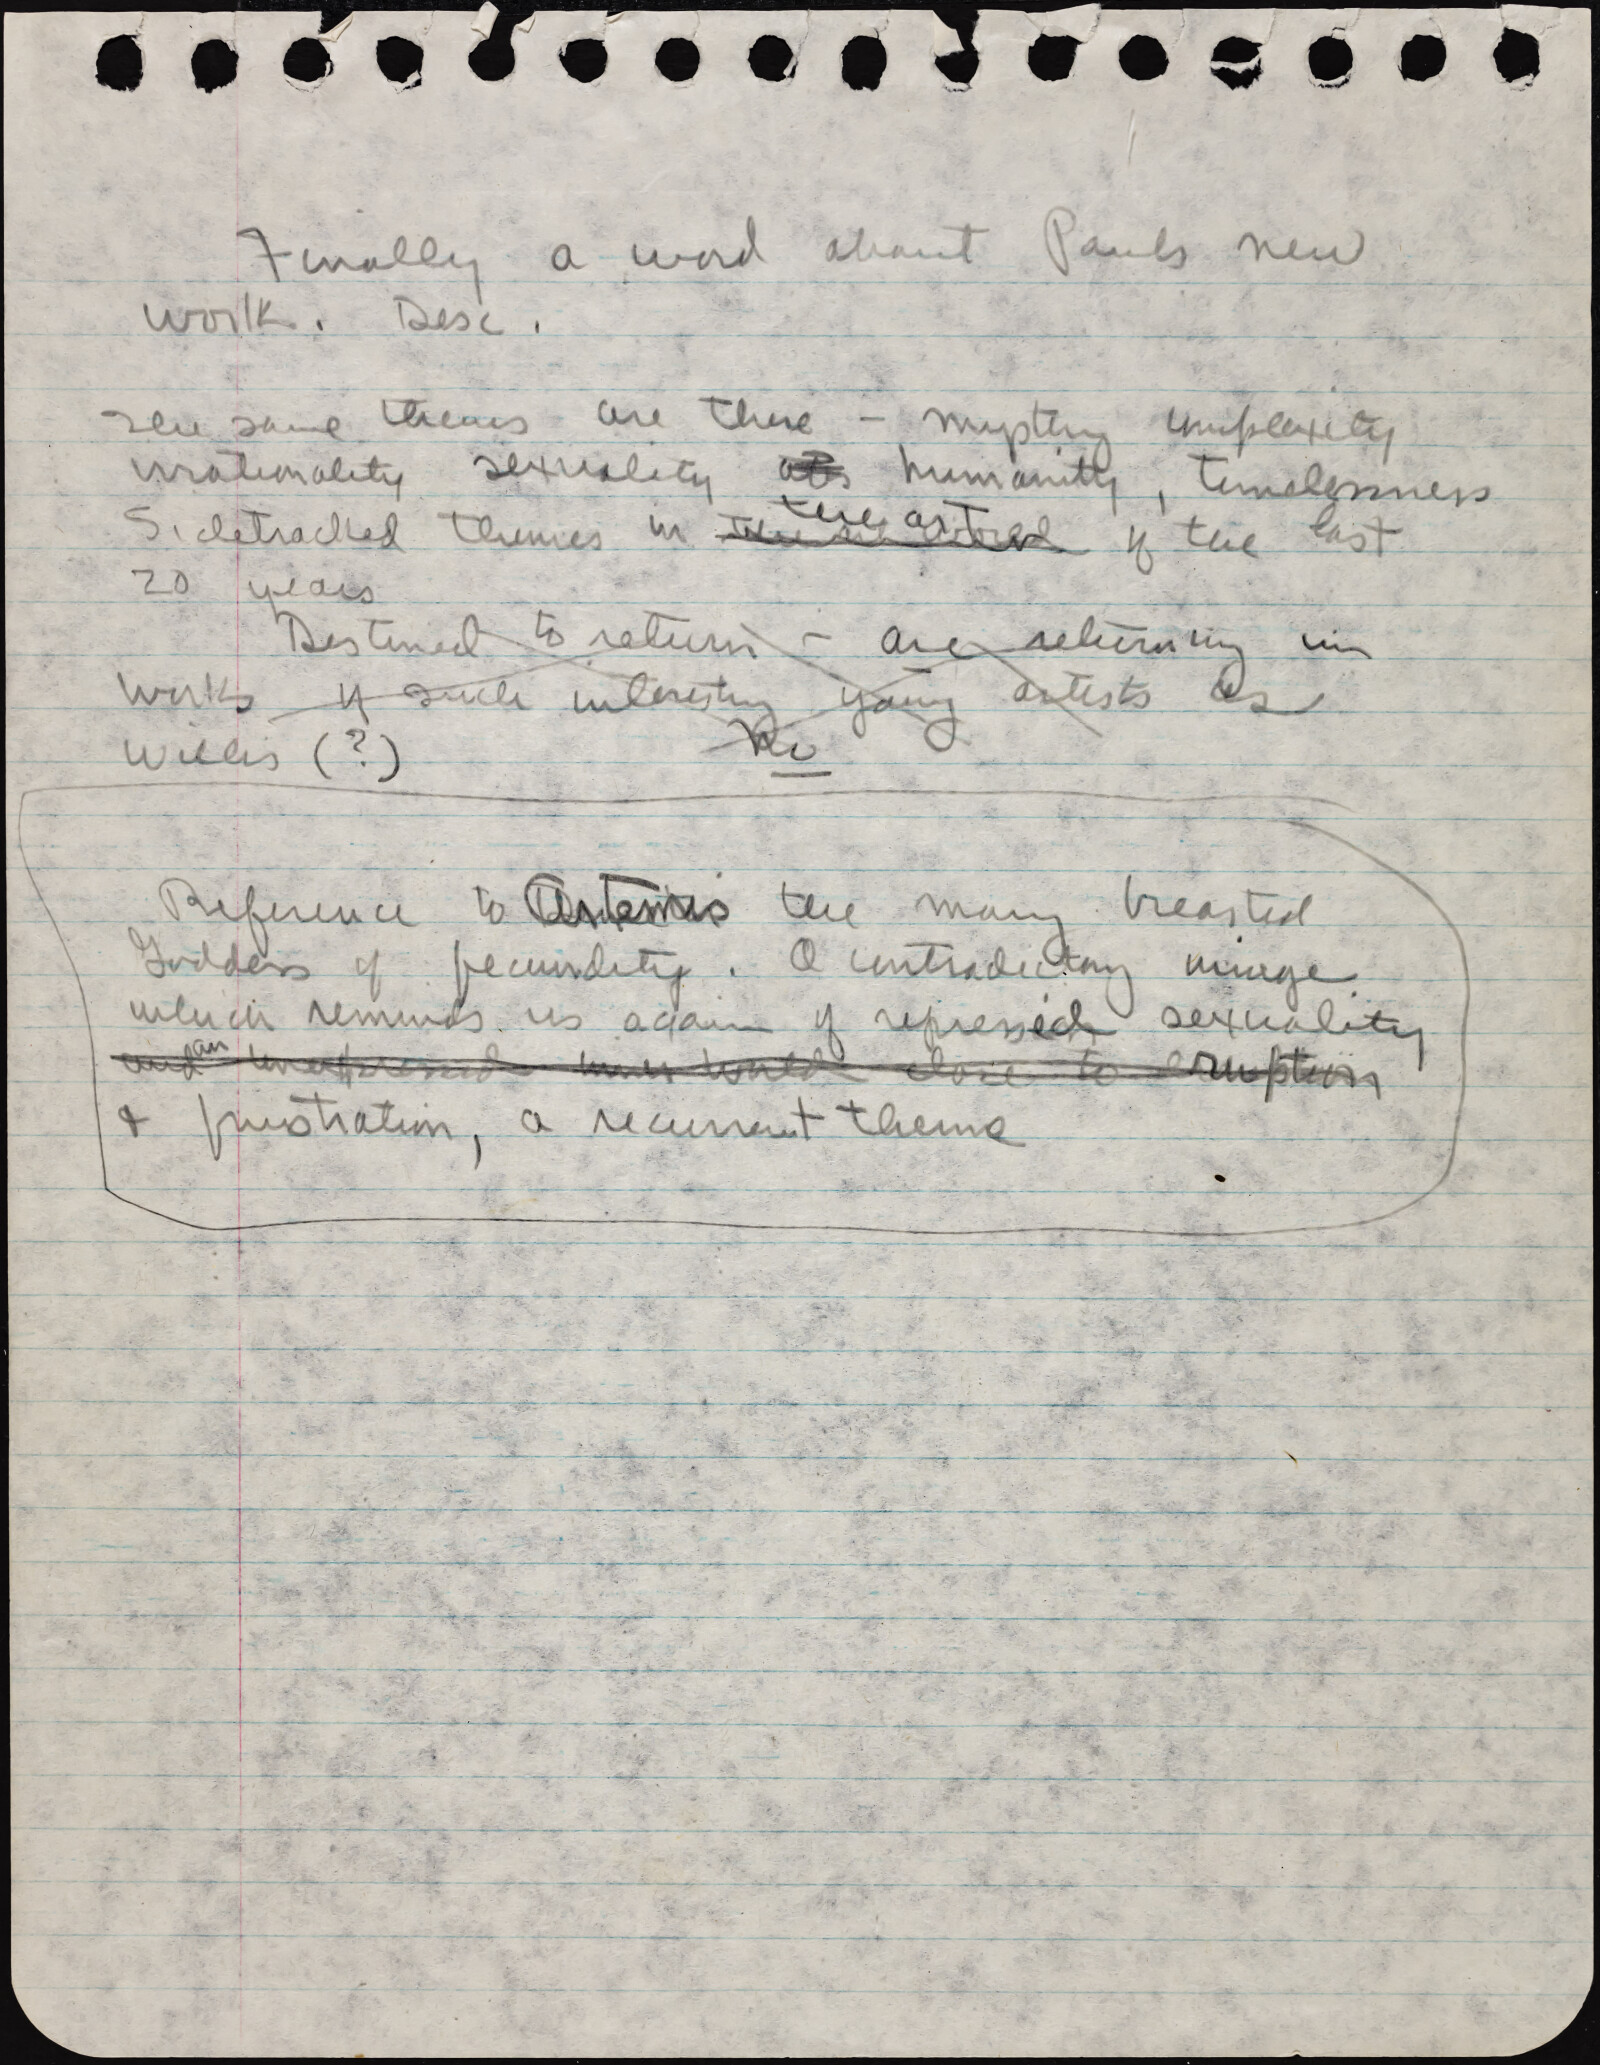 Finally a word about Pauls new
work. Desc.
The same themes are there – mystery complexity
irrationality sexuality humanity, timelessness
the art
Sidetracked themes in of the last
20 years
Destined to return – are returning in
works of such interesting young artists as
Willis (?) No
Reference to Artemis the many breasted
Goddess of fecundity. A contradictory image
which reminds us again of repressed sexuality
and an unexpressed inner world close to eruption
& frustration, a recurrent theme